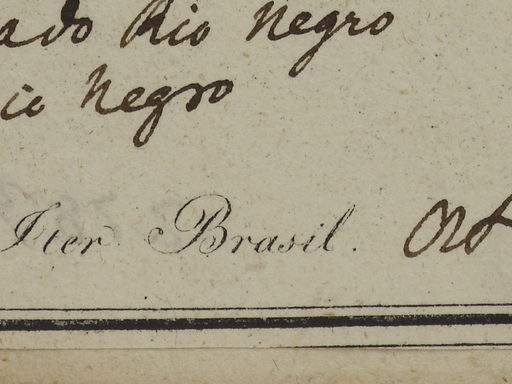 ado Rio Negro
io Negro
Iter Brasil.